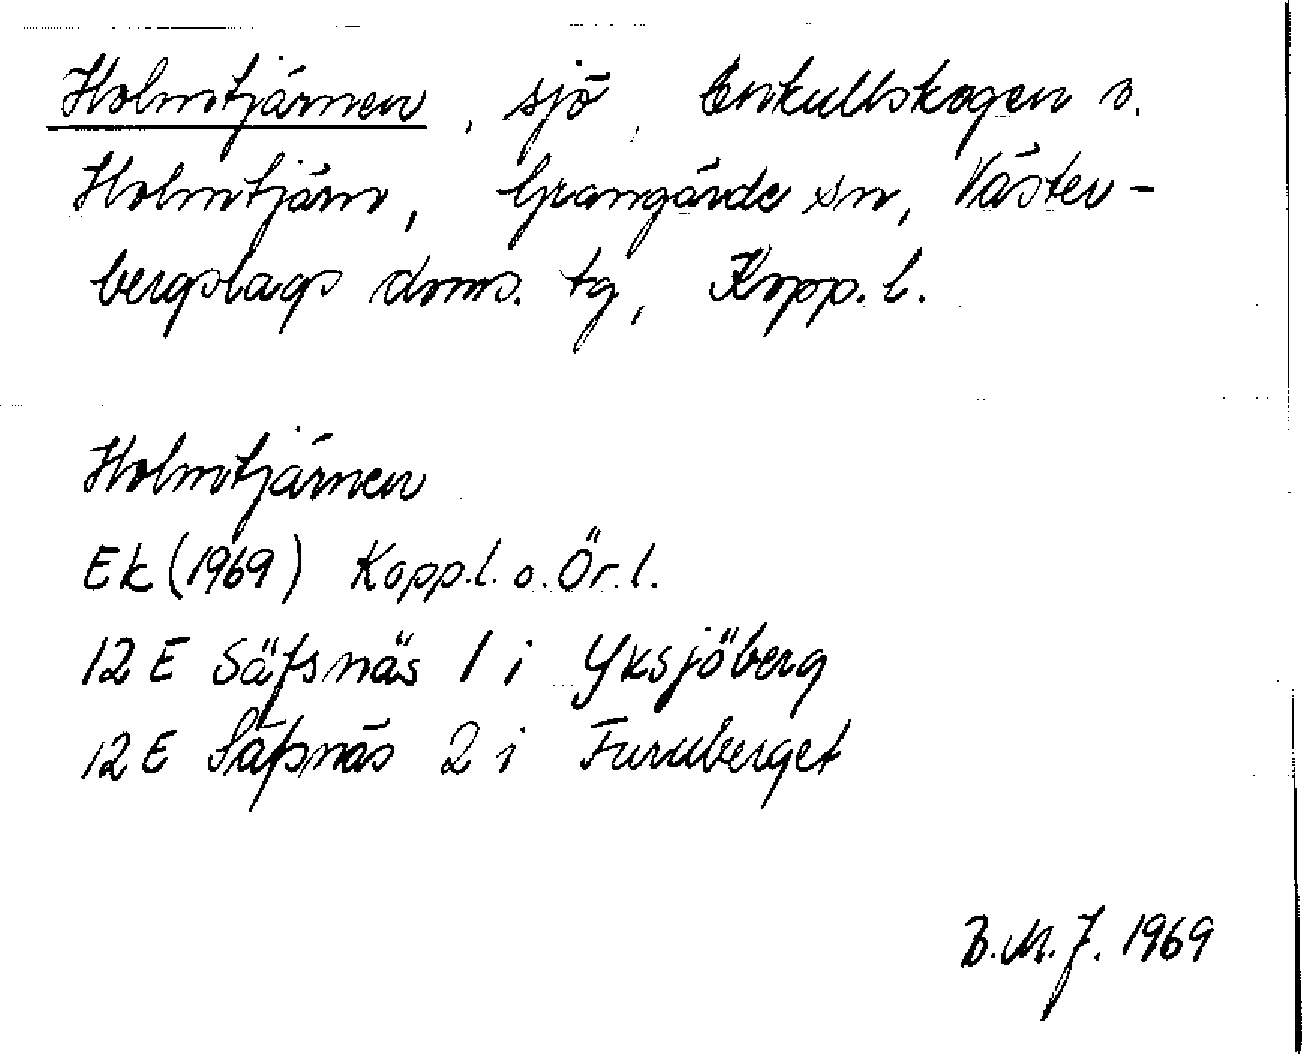 Holmtjärnen, sjö, Enkullskogen o.
Holmtjärn, Grangärde sn, Väster-
bergslags doms. tg, Kopp. l.
Holmtjärnen
Ek (1969) Kopp.l. o. Ör. l.
12 E Säfsnäs 1 i Yksjöberg
12 E Säfsnäs 2 i Furuberget
B.M.J. 1969